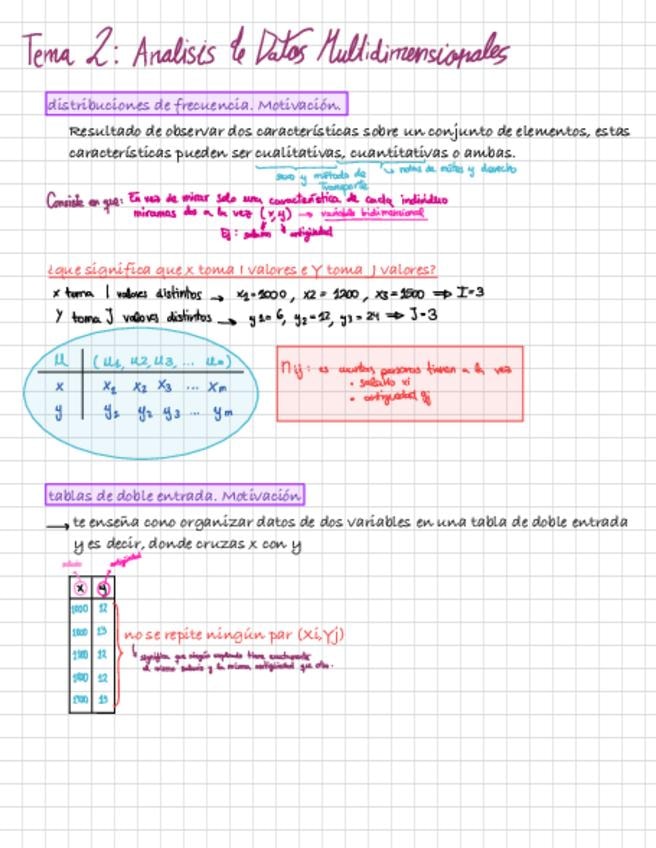 Tema 2: Analisis de Datos Multidimensionales
distribuciones de frecuencia. Motivación.
Resultado de observar dos características sobre un conjunto de elementos, estas
características pueden ser cualitativas, cuantitativas o ambas.
sexo y método de Transporte
notas de mates y derecho
Consiste en que: En vez de mirar solo una característica de cada individuo
miramos dos a la vez (x,y) → variable bidimensional
Ej: salario antigüedad
¿que significa que x toma I valores e Y toma J valores?
x toma I valores distintos → x1=1000, x2=1200, x3=1500 ⇒ I=3
Y toma J valores distintos → y1=6, y2=12, y3=24 ⇒ J=3
u (u1, u2, u3, ... un)
x x1 x2 x3 ... xm
y y1 y2 y3 ... ym
nij: es cuantas personas tienen a la vez
• salario xi
• antigüedad yj
tablas de doble entrada. Motivación
→ te enseña cono organizar datos de dos variables en una tabla de doble entrada
y es decir, donde cruzas x con y
salario antigüedad
x y
1000 12
13
12
12
13
no se repite ningún par (Xi,Yj)
significa que ningún empleado tiene exactamente
el mismo salario y la misma antigüedad que otro.